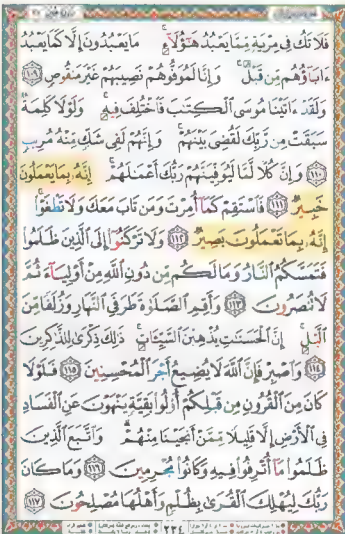 فَلَا تَكُ فِي مِرْيَةٍ مِّمَّا يَعْبُدُ هَٰٓؤُلَآءِ ۚ مَا يَعْبُدُونَ إِلَّا كَمَا يَعْبُدُ
ءَابَآؤُهُم مِّن قَبْلُ ۚ وَإِنَّا لَمُوَفُّوهُمْ نَصِيبَهُمْ غَيْرَ مَنقُوصٍ ١٠٩
وَلَقَدْ ءَاتَيْنَا مُوسَى ٱلْكِتَٰبَ فَٱخْتُلِفَ فِيهِ ۚ وَلَوْلَا كَلِمَةٌ
سَبَقَتْ مِن رَّبِّكَ لَقُضِىَ بَيْنَهُمْ ۚ وَإِنَّهُمْ لَفِى شَكٍّ مِّنْهُ مُرِيبٍ
١١٠ وَإِنَّ كُلًّا لَّمَّا لَيُوَفِّيَنَّهُمْ رَبُّكَ أَعْمَٰلَهُمْ ۚ إِنَّهُۥ بِمَا يَعْمَلُونَ
خَبِيرٌ ١١١ فَٱسْتَقِمْ كَمَآ أُمِرْتَ وَمَن تَابَ مَعَكَ وَلَا تَطْغَوْا۟ ۚ
إِنَّهُۥ بِمَا تَعْمَلُونَ بَصِيرٌ ١١٢ وَلَا تَرْكَنُوٓا۟ إِلَى ٱلَّذِينَ ظَلَمُوا۟
فَتَمَسَّكُمُ ٱلنَّارُ وَمَا لَكُم مِّن دُونِ ٱللَّهِ مِنْ أَوْلِيَآءَ ثُمَّ
لَا تُنصَرُونَ ١١٣ وَأَقِمِ ٱلصَّلَوٰةَ طَرَفَىِ ٱلنَّهَارِ وَزُلَفًا مِّنَ
ٱلَّيْلِ ۚ إِنَّ ٱلْحَسَنَٰتِ يُذْهِبْنَ ٱلسَّيِّـَٔاتِ ۚ ذَٰلِكَ ذِكْرَىٰ لِلذَّٰكِرِينَ
١١٤ وَٱصْبِرْ فَإِنَّ ٱللَّهَ لَا يُضِيعُ أَجْرَ ٱلْمُحْسِنِينَ ١١٥ فَلَوْلَا
كَانَ مِنَ ٱلْقُرُونِ مِن قَبْلِكُمْ أُو۟لُوا۟ بَقِيَّةٍ يَنْهَوْنَ عَنِ ٱلْفَسَادِ
فِى ٱلْأَرْضِ إِلَّا قَلِيلًا مِّمَّنْ أَنجَيْنَا مِنْهُمْ ۗ وَٱتَّبَعَ ٱلَّذِينَ
ظَلَمُوا۟ مَآ أُتْرِفُوا۟ فِيهِ وَكَانُوا۟ مُجْرِمِينَ ١١٦ وَمَا كَانَ
رَبُّكَ لِيُهْلِكَ ٱلْقُرَىٰ بِظُلْمٍ وَأَهْلُهَا مُصْلِحُونَ ١١٧
٢٣٤